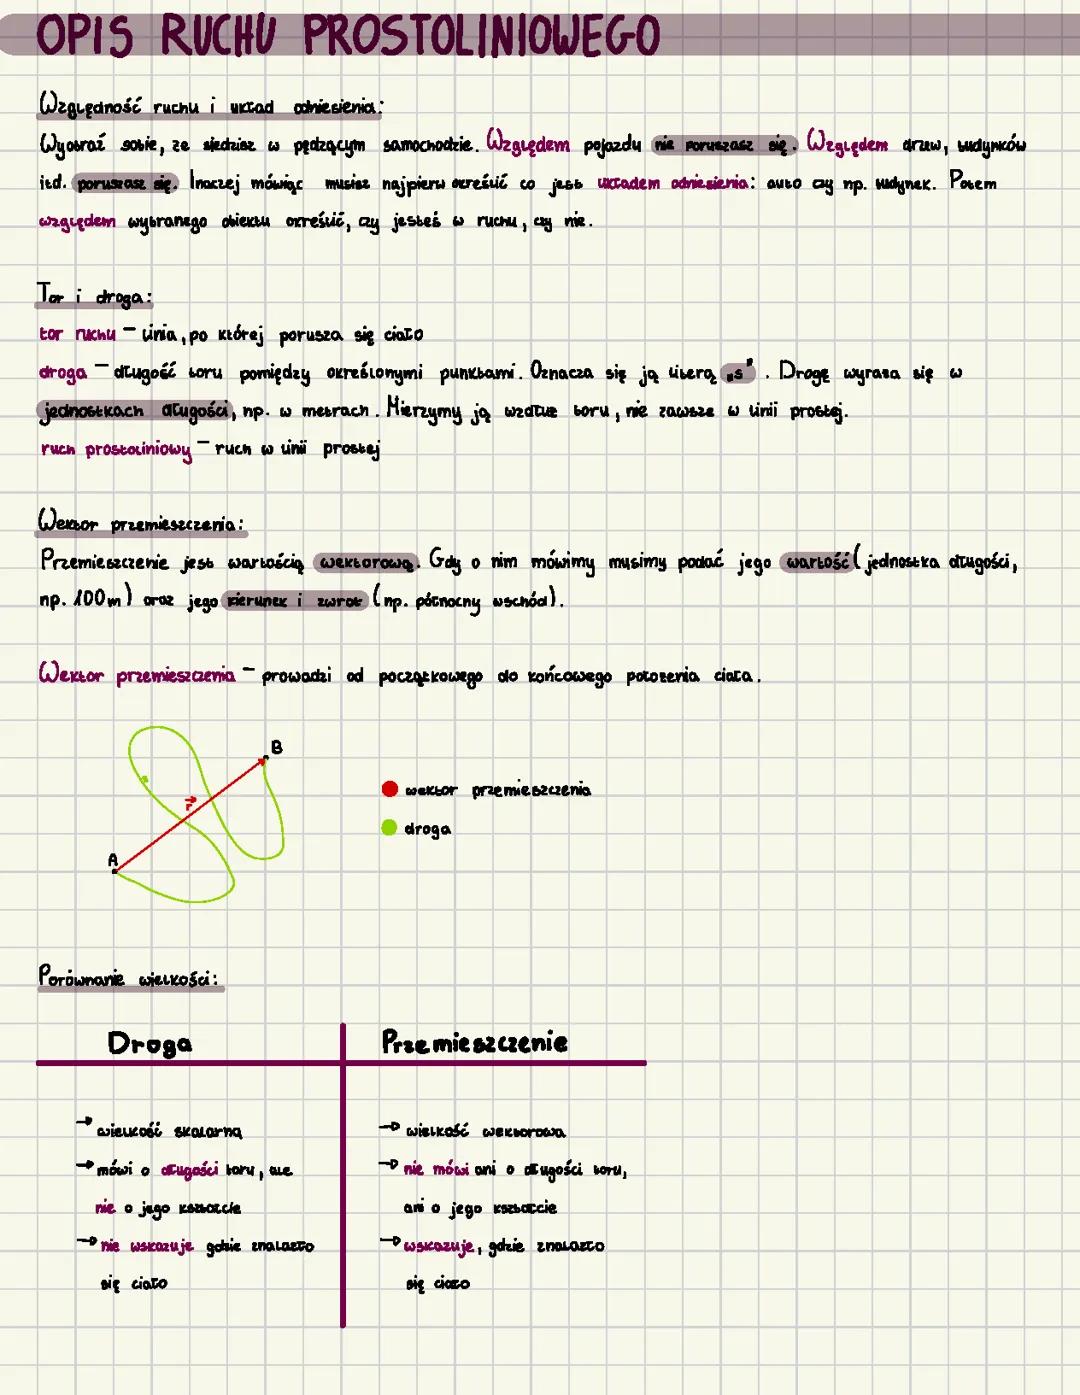 OPIS RUCHU PROSTOLINIOWEGO
Względność ruchu i układ odniesienia:
Wyobraź sobie, że siedzisz w pędzącym samochodzie. Względem pojazdu nie poruszasz się. Względem drzew, budynków
itd. poruszasz się. Inaczej mówiąc musisz najpierw określić co jest układem odniesienia: auto czy np. budynek. Potem
względem wybranego obiektu określić, czy jesteś w ruchu, czy nie.
Tor i droga:
tor ruchu – linia, po której porusza się ciało
droga – długość toru pomiędzy określonymi punktami. Oznacza się ją literą „s”. Drogę wyraża się w
jednostkach długości, np. w metrach. Mierzymy ją wzdłuż toru, nie zawsze w linii prostej.
ruch prostoliniowy – ruch w linii prostej
Wektor przemieszczenia:
Przemieszczenie jest wartością wektorową. Gdy o nim mówimy musimy podać jego wartość (jednostka długości,
np. 100m) oraz jego kierunek i zwrot (np. północny wschód).
Wektor przemieszczenia – prowadzi od początkowego do końcowego położenia ciała.
B
s
r⃗
A
wektor przemieszczenia
droga
Porównanie wielkości:
Droga
→ wielkość skalarna
→ mówi o długości toru, ale
nie o jego kształcie
→ nie wskazuje gdzie znalazło
się ciało
Przemieszczenie
→ wielkość wektorowa
→ nie mówi ani o długości toru,
ani o jego kształcie
→ wskazuje, gdzie znalazło
się ciało